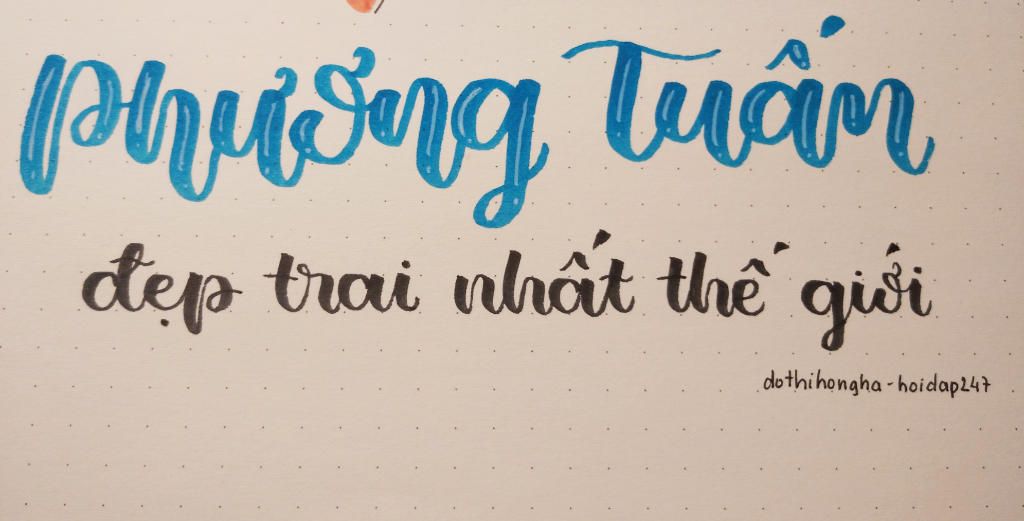 Phương Tuấn
đẹp trai nhất thế giới
dothihongha - hoidap247